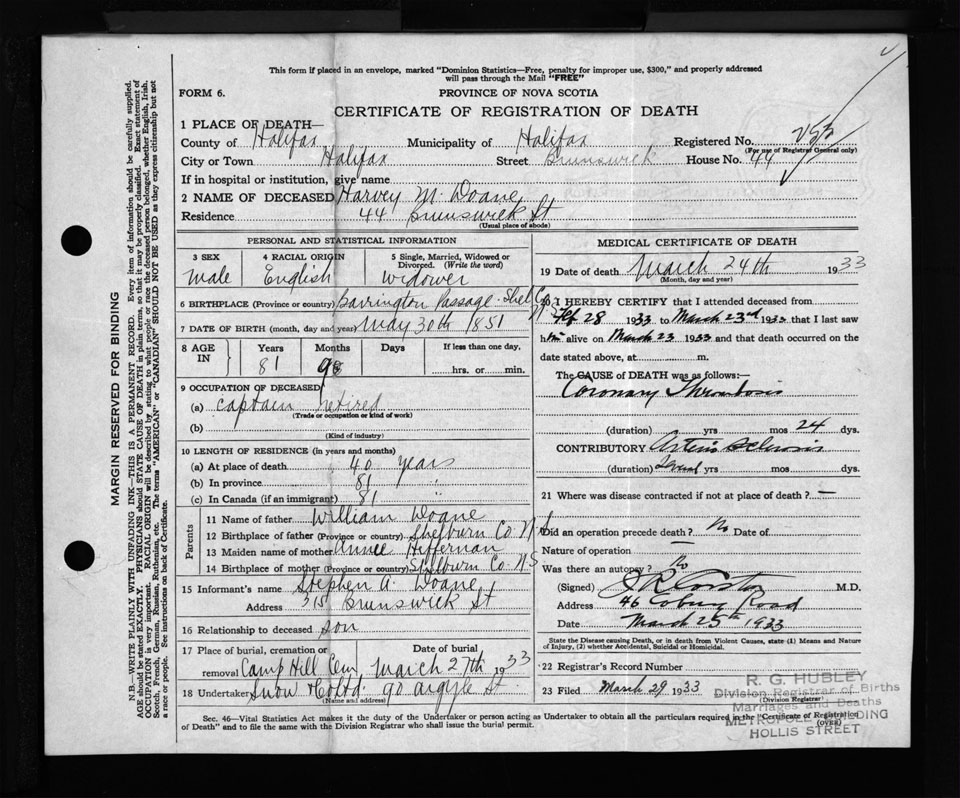 This form if placed in an envelope, marked "Dominion Statistics—Free, penalty for improper use, $300," and properly addressed
will pass through the Mail "FREE"
FORM 6.
PROVINCE OF NOVA SCOTIA
CERTIFICATE OF REGISTRATION OF DEATH
1 PLACE OF DEATH—
County of Halifax Municipality of Halifax Registered No.
(For use of Registrar General only)
City or Town Halifax Street Brunswick House No. 44
If in hospital or institution, give name
2 NAME OF DECEASED Harvey M. Doane
Residence 44 Brunswick St
(Usual place of abode)
PERSONAL AND STATISTICAL INFORMATION
3 SEX 4 RACIAL ORIGIN 5 Single, Married, Widowed or
Divorced. (Write the word)
Male English Widower
6 BIRTHPLACE (Province or country) Barrington Passage - Shel Co N.S
7 DATE OF BIRTH (month, day and year) May 30th 1851
8 AGE IN Years Months Days If less than one day,
81 9 hrs. or min.
9 OCCUPATION OF DECEASED
(a) captain retired
(Trade or occupation or kind of work)
(b)
(Kind of industry)
10 LENGTH OF RESIDENCE (in years and months)
(a) At place of death 40 years
(b) In province 81 "
(c) In Canada (if an immigrant) 81 "
Parents
11 Name of father William Doane
12 Birthplace of father (Province or country) Shelburn Co N.S
13 Maiden name of mother Annee Hiffernan
14 Birthplace of mother (Province or country) Shelburn Co N.S
15 Informant's name Stephen A. Doane
Address 315 Brunswick St
16 Relationship to deceased Son
17 Place of burial, cremation or removal Date of burial
Camp Hill Cem March 27th 1933
18 Undertaker Snow Co Ltd. 90 Argyle St
(Name and address)
MEDICAL CERTIFICATE OF DEATH
19 Date of death March 24th 1933
(Month, day and year)
20 I HEREBY CERTIFY that I attended deceased from
Feb 28 1933 to March 23rd 1933 that I last saw
him alive on March 23 1933 and that death occurred on the
date stated above, at m.
The CAUSE OF DEATH was as follows:—
Coronary Thrombosis
(duration) yrs mos 24 dys.
CONTRIBUTORY
(duration) Several yrs mos dys.
21 Where was disease contracted if not at place of death? —
Did an operation precede death? No Date of
Nature of operation —
Was there an autopsy? No
(Signed) M.D.
Address 46 Coburg Road
Date March 25th 1933
State the Disease causing Death, or in death from Violent Causes, state (1) Means and Nature
of Injury, (2) whether Accidental, Suicidal or Homicidal.
22 Registrar's Record Number
23 Filed March 29 1933
(Division Registrar)
R. G. HUBLEY
Division Registrar of Births
Marriages and Deaths
METROPOLE BUILDING
HOLLIS STREET
Sec. 46—Vital Statistics Act makes it the duty of the Undertaker or person acting as Undertaker to obtain all the particulars required in the "Certificate of Registration
of Death" and to file the same with the Division Registrar who shall issue the burial permit.
(OVER)
MARGIN RESERVED FOR BINDING
N.B.—WRITE PLAINLY WITH UNFADING INK—THIS IS A PERMANENT RECORD. Every item of information should be carefully supplied.
AGE should be stated EXACTLY. PHYSICIANS should STATE CAUSE OF DEATH in plain terms, so that it may be properly classified. Exact statement of
OCCUPATION is very important. RACIAL ORIGIN will be described by stating to what people or race the deceased person belonged, whether English, Irish,
Scotch, French, German, Russian, Ruthenian, etc. The terms "AMERICAN" or "CANADIAN" SHOULD NOT BE USED as they express citizenship but not
a race or people. See instructions on back of Certificate.